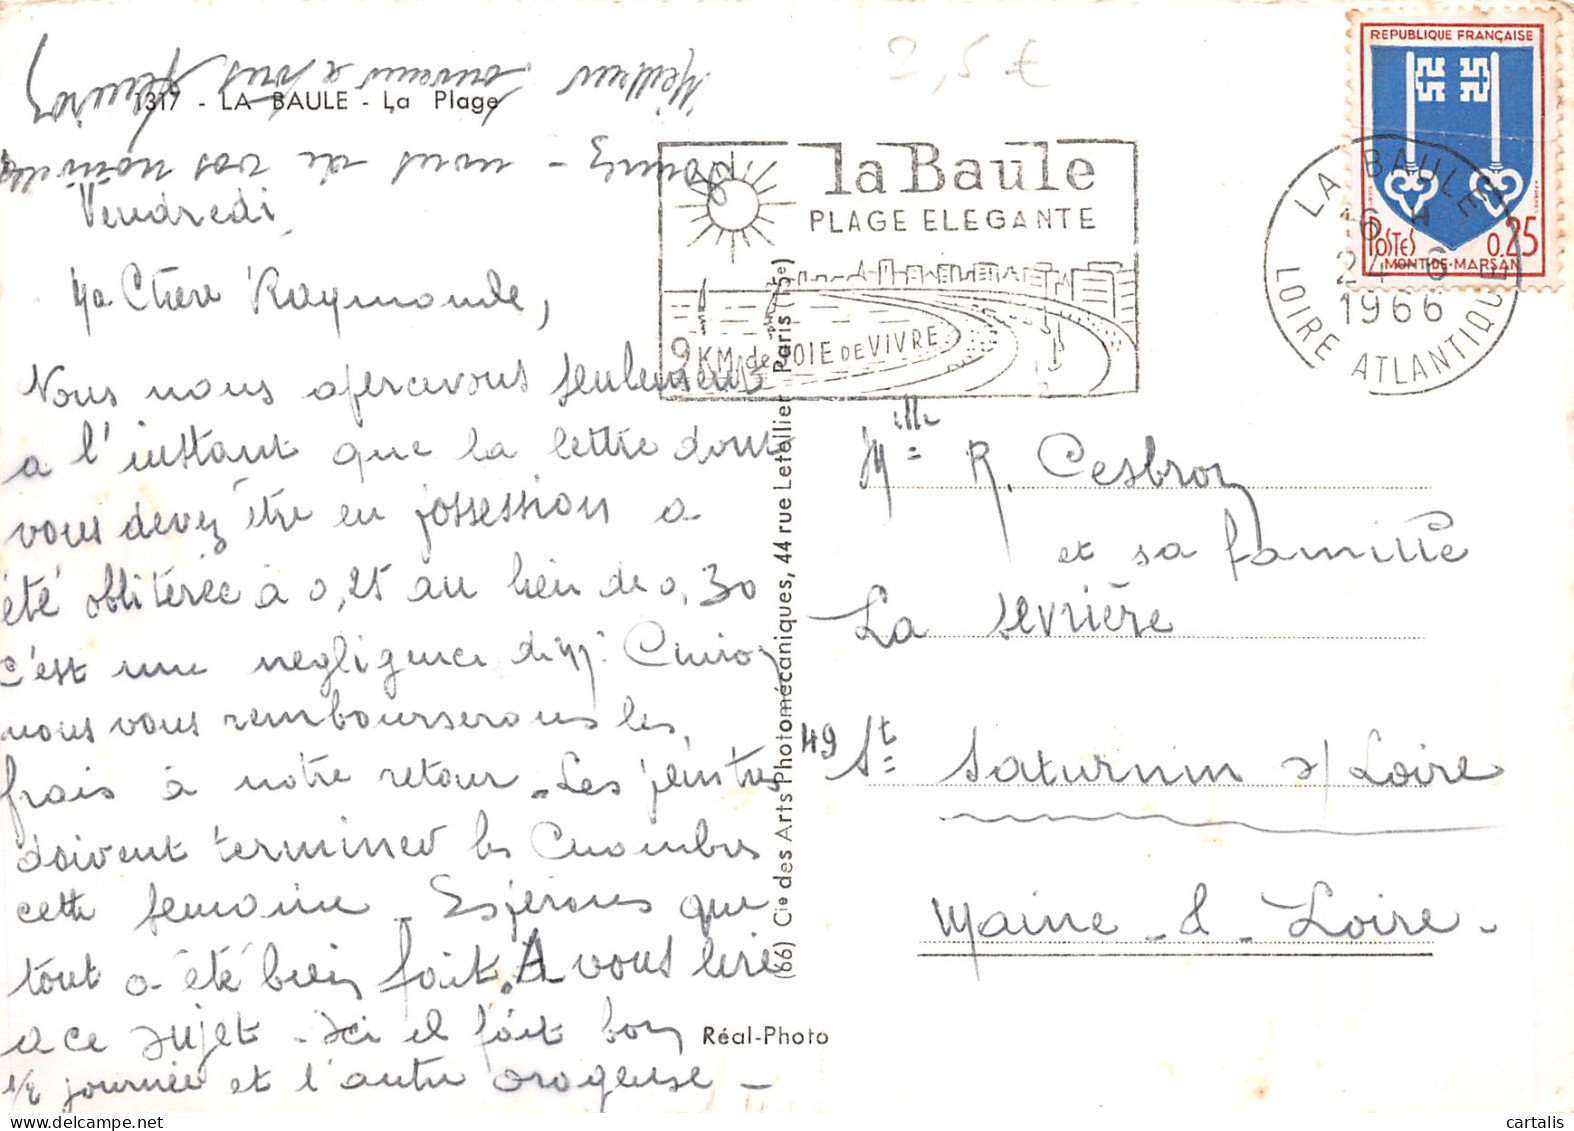 2,5 €
1317 - LA BAULE - La Plage
REPUBLIQUE FRANÇAISE
POSTES 0,25
MONT-DE-MARSAN
la Baule
PLAGE ELEGANTE
9 KM. de JOIE DE VIVRE
LA BAULE
16 H
24-6
1966
LOIRE ATLANTIQUE
Vendredi
Ma Chère Raymonde,
Nous nous apercevons seulement
a l'instant que la lettre dont
vous devez être en possession a
été oblitérée à 0,25 au lieu de 0,30
c'est une negligence de Mr
nous vous rembourserons les
frais à notre retour - Les peintres
doivent terminer les Chambres
cette semaine - Espérons que
tout a été bien fait. A vous lire
a ce sujet - Ici il fait bon
1/2 journée et l'autre orageuse -
Donnez - nous de vos nouvelles
Meilleurs souvenirs a vous
(66) Cie des Arts Photomécaniques, 44 rue Letellier Paris (15e)
Réal-Photo
Mlle R. Cesbron
et sa famille
La Sevrière
49 St Saturnin s/ Loire
Maine - & - Loire -
cartalis.com